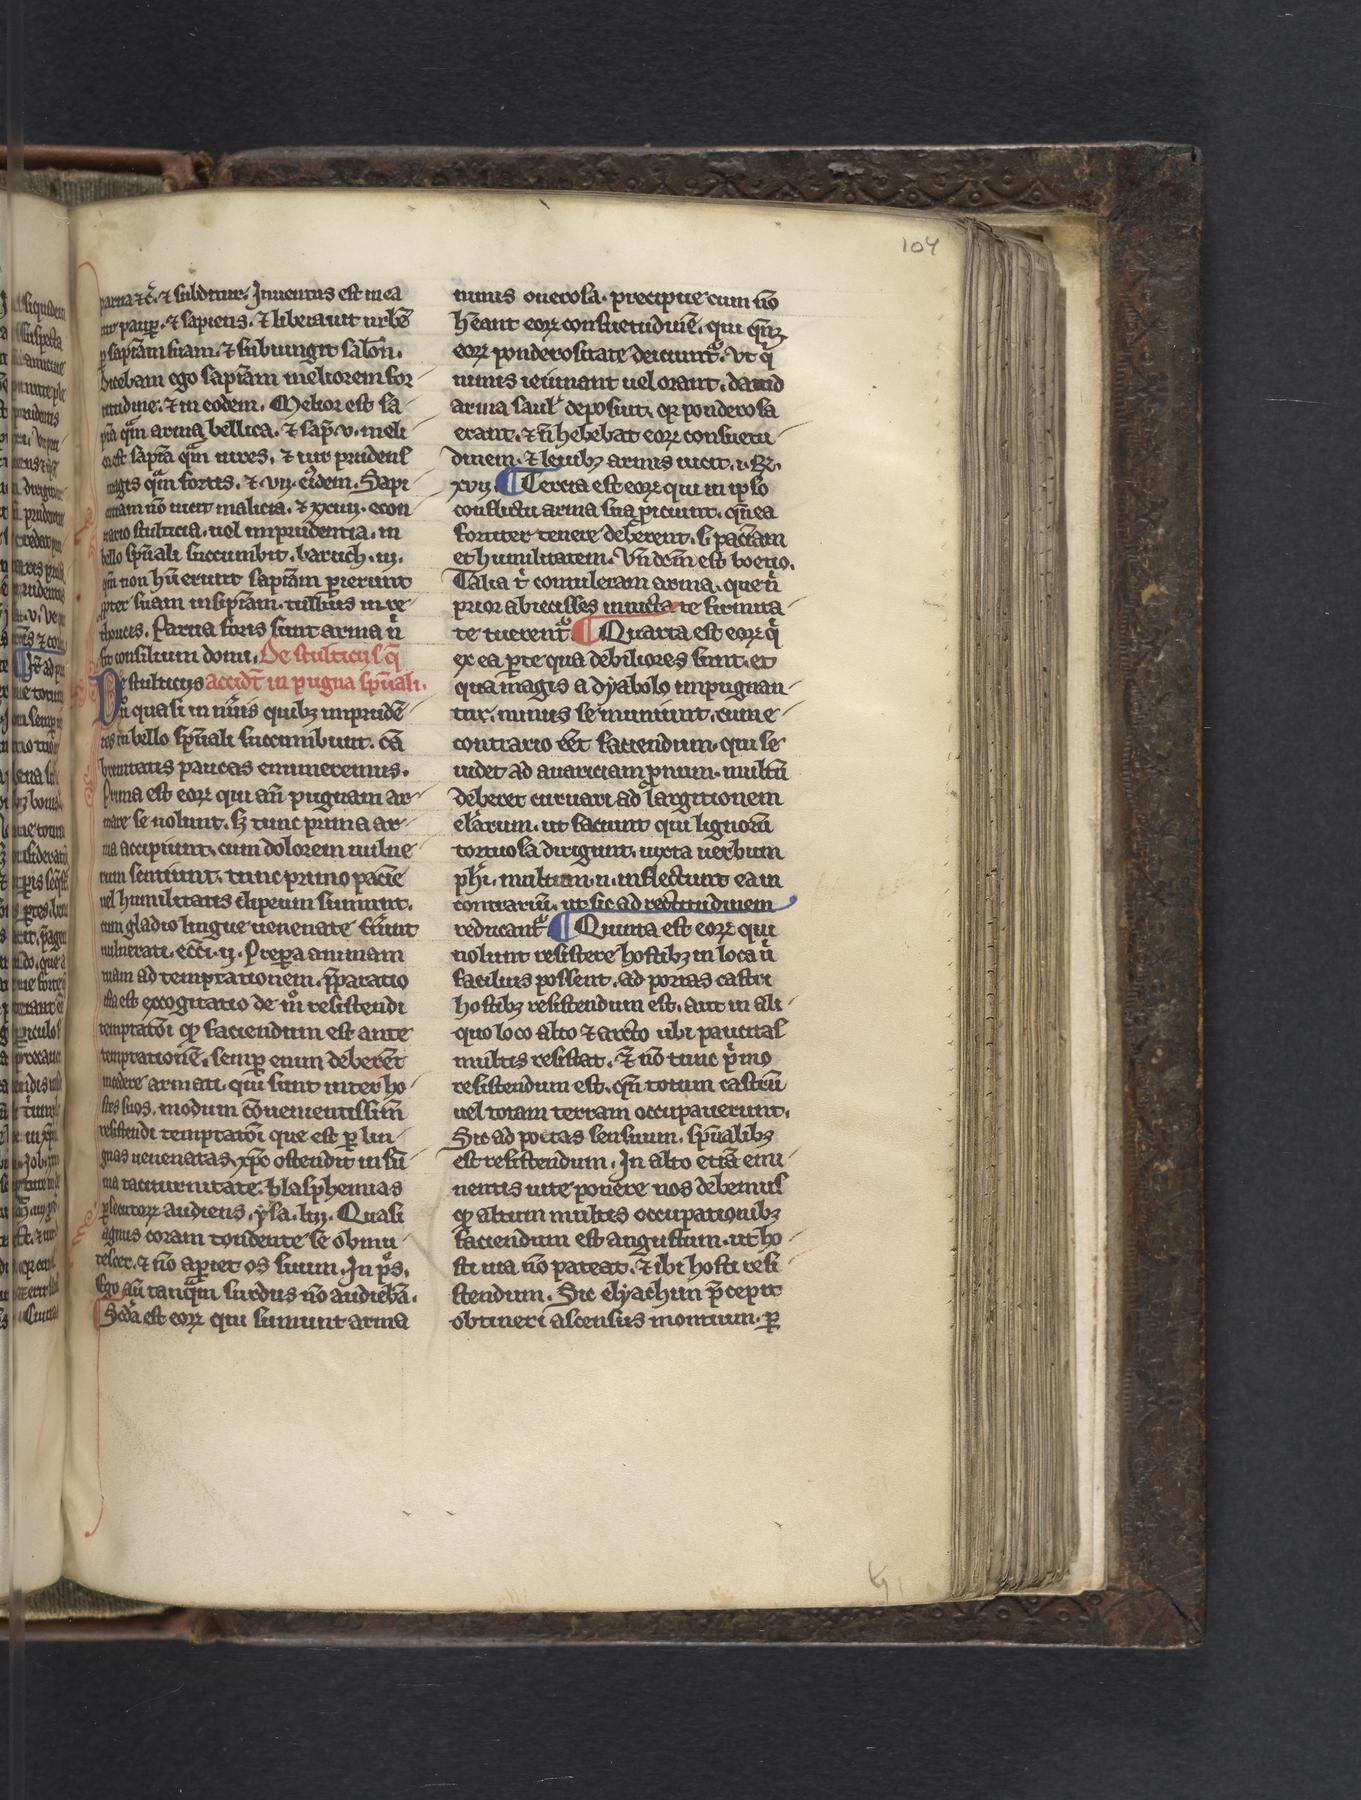 104
parua ⁊c̄. ⁊ subditur. Inuentus est in ea
uir paup̲. ⁊ sapiens. ⁊ liberauit urbē
p̲ sapīam suam. ⁊ subiungit salōn.
Dicebam ego sapīam meliorem for
titudine. ⁊ in eodem. Melior est sa
pīa q̄m arma bellica. ⁊ sap̄. v. meli
or est sapīa q̄m uires. ⁊ uir prudens
magis q̄m fortis. ⁊ vij. eīdem. Sapi
entiam nō uicit malicia. ⁊ xxiiij. econ
trario stulticia. uel imprudentia. in
bello sp̄uali succumbit. baruch. iij.
qm̄ non hūerunt sapīam p̲ierunt
ꝓpter suam insipīam. tullius in re
thoricis. Parua foris sunt arma ni
si consilium domi. De stulticijs q̄
De stulticijs accidūt in pugna sp̄uali.
N̄ quasi in nr̄is quibꝫ impruden
tes in bello sp̄uali succumbūt. cā
breuitatis paucas enumeremus.
Prima est eoꝝ qui an̄ pugnam ar
mare se nolunt. sꝫ tunc prima ar
ma accipiunt. cum dolorem uulne
rum sentiunt. tunc primo paciē
uel humilitatis clipeum sumunt.
cum gladio lingue uenenate fūint
uulnerati. ecc̄i. ij. Prepara animam
tuam ad temptationem. p̄paratio
ista est excogitatio de mō resistendi
temptatōi qꝫ faciendum est ante
temptationē. semp̲ enim deberēt
incedere armati. qui sunt inter ho
stes suos. modum cōuenientissim̄
resistendi temptatōi que est p̲ lin
guas uenenatas. xp̄c ostendit in su
ma taciturnitate. blasphemias
p̲secutoꝝ audiens. ysa. liij. Quasi
agnus coram tondente se obmu
tescet. ⁊ nō aperiet os suum. In ps̄.
Ego aūt tanq̄m surdus nō audiebā.
Scd̄a est eoꝝ qui sumunt arma
nimis onerosa. precipue cum nō
hēant eoꝝ consuetudinē. qui qn̄qꝫ
eoꝝ ponderositate deiciunt᷑. Vt q̄
nimis ieiunant uel orant. dauid
arma saul deposuit. qꝛ ponderosa
erant. ⁊ n̄ hebebat eoꝝ consuetu
dinem. ⁊ leuibꝫ armis uicit. i. Rꝫ.
xvij. ¶ Tercia est eoꝝ qui in ipso
conflictu arma sua p̲iciunt. qn̄ ea
fortiter tenere deberent. s. paciam
et humilitatem. Vn̄ dcm̄ est boetio.
Talia t̄ contuleram arma. que n̄
prior abiecisses inuicta te firmita
te tuerent᷑. ¶ Quarta est eoꝝ q̄
ex ea parte qua debiliores sunt. et
qua magis a dyabolo impugnan
tur. minus se muniunt. cum e
contrario eēt faciendum. qui se
uidet ad auariciam pronum. multū
deberet curuari ad largitionem
elārum. ut faciunt qui lignorū
tortuosa dirigunt. iuxta uerbum
ph̄i. multum. n. inflectunt ea in
contrariū. ut sic ad rectitudinem
reducant᷑. ¶ Quinta est eoꝝ qui
nolunt resistere hostibꝫ in loca ū
facilius possent. ad portas castri
hostibꝫ resistendum est. aut in ali
quo loco alto ⁊ arcto ubi paucitas
multis resistat. ⁊ nō tunc p̄mo
resistendum est. qn̄ totum castrū
uel totam terram occupauerunt.
Sic ad portas sensuum. sp̄ualibꝫ
est resistendum. In alto etiā emi
nentis uite ponere nos debemus
qꝫ altum multis occupationibꝫ
faciendum est angustum. ut ho
sti uia nō pateat. ⁊ ibi hosti resi
stendum. Sic elyachim p̄cepit
obtineri ascensus montium. p̲